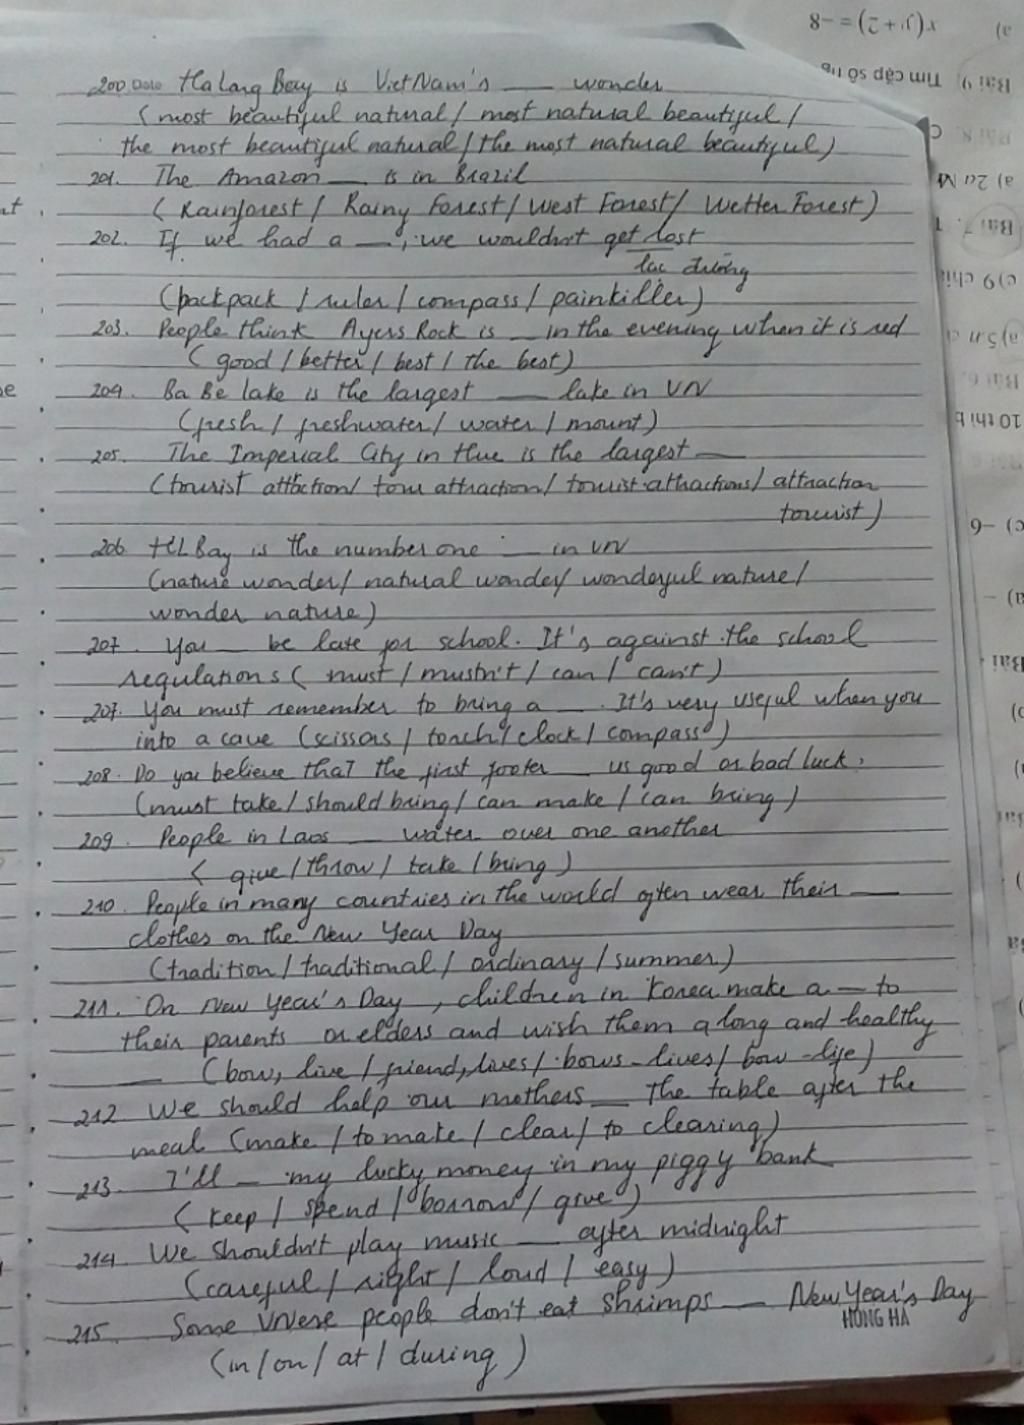 200. Date Ha Long Bay is VietNam's ___ wonder
( most beautiful natural / most natural beautiful /
the most beautiful natural / the most natural beautiful )
201. The Amazon ___ is in Brazil
( Rainforest / Rainy Forest / West Forest / Wetter Forest )
202. If we had a ___, we wouldn't get lost
lạc đường
(backpack / ruler / compass / painkiller )
203. People think Ayers Rock is ___ in the evening when it is red
( good / better / best / the best )
204. Ba Be lake is the largest ___ lake in VN
(fresh / freshwater / water / mount )
205. The Imperial City in Hue is the largest ___
(tourist attraction / tour attraction / tourist attractions / attraction
tourist )
206 HL Bay is the number one ___ in VN
(nature wonder / natural wonder / wonderful nature /
wonder nature )
207. You ___ be late for school. It's against the school
regulations ( must / mustn't / can / can't )
207. You must remember to bring a ___. It's very useful when you
into a cave (scissors / torch / clock / compass )
208. Do you believe that the first footer ___ us good or bad luck.
(must take / should bring / can make / can bring )
209. People in Laos ___ water over one another
( give / throw / take / bring )
210. People in many countries in the world often wear their ___
clothes on the New Year Day
(tradition / traditional / ordinary / summer )
211. On New Year's Day, children in Korea make a ___ to
their parents or elders and wish them a long and healthy
___ (bow, live / friend, lives / bows - lives / bow - life )
212 We should help our mothers ___ the table after the
meal (make / to make / clear / to clearing )
213. I'll ___ my lucky money in my piggy bank
( keep / spend / borrow / give )
214. We shouldn't play music ___ after midnight
(careful / night / loud / easy )
215. Some people don't eat shrimps ___ New Year's Day
HONG HA
(in / on / at / during )
x(y+2) = -8
Tìm cặp số
Bài 9